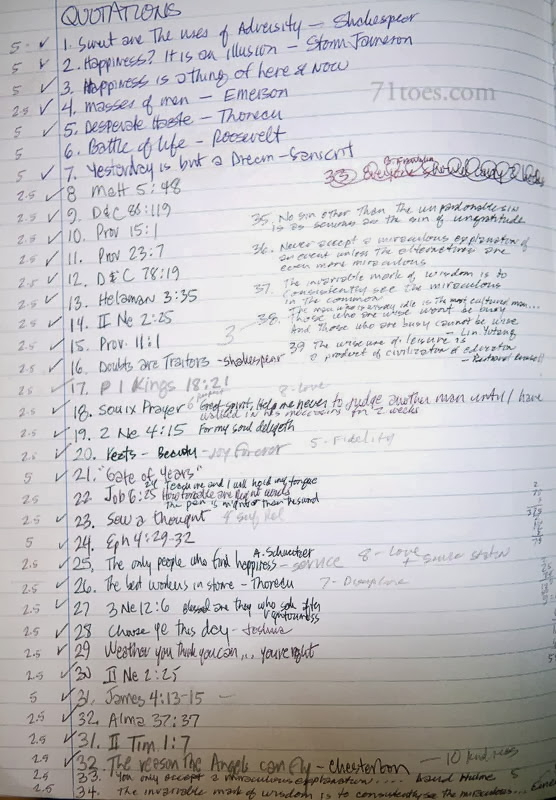 QUOTATIONS
5 - ✓ 1. Sweet are The uses of Adversity - Shakespear
5 ✓ 2. Happiness? It is an illusion - Storm Jameson
5 ✓ 3. Happiness is a thing of here & Now
71toes.com
2.5 ✓ 4. Masses of men - Emerson
5 ✓ 5. Desperate Haste - Thoreau
5 6. Battle of Life - Roosevelt
5 ✓ 7. Yesterday is but a Dream - Sanscrit
2.5 ✓ 8 Matt 5:48
2.5 ✓ 9. D&C 88:119
2.5 ✓ 10. Prov 15:1
2.5 ✓ 11. Prov 23:7
2.5 ✓ 12. D&C 78:19
2.5 ✓ 13. Helaman 3:35
2.5 ✓ 14. II Ne 2:25
2.5 ✓ 15. Prov. 11:1
2.5 ✓ 16. Doubts are Traitors - Shakespear
2.5 ✓ 17. I Kings 18:21
33
35. No sin other Than the unpardonable sin
is as serious as the sin of ungratitude
36. Never accept a miraculous explanation of
an event unless the alternatives are
even more miraculous
37. The invariable mark of wisdom is to
consistently see the miraculous
in the common
3 38. The man who is idle is The most cultured man...
Those who are wise wont be busy
And those who are busy cannot be wise
- Lin Yutang
39 The wise use of leisure is
a product of civilization & education
8-love
2.5 ✓ 18. Souix Prayer 6 Great spirit, Help me never to judge another man until I have
walked in his moccasins for 2 weeks
2.5 ✓ 19. 2 Ne 4:15 For my soul delighteth
2.5 ✓ 20. Keats - Beauty - Joy forever 5- Fidelity
5 ✓ 21. "Gate of Years"
2.5 ✓ 22 Job 6:25 24 Teach me and I will hold my tongue
How forcible are Right words
The pen is mightier than the sword
2.5 ✓ 23. Sow a thought 4 Self Rel
5 ✓ 24. Eph 4:29-32
2.5 ✓ 25. The only people who find happiness - A. Schweitzer - service 8-Love
2.5 ✓ 26. The best workers in stone - Thoreau 7- Discipline
2.5 ✓ 27 3 Ne 12:6 blessed are they who seek after
2.5 ✓ 28 Choose ye this day - Joshua
2.5 ✓ 29 Weather you think you can,... you're right
2.5 ✓ 30 II Ne 2:25
5 ✓ 31. James 4:13-15 -
2.5 ✓ 32. Alma 37:37
2.5 ✓ 31. II Tim 1:7
2.5 ✓ 32. The reason The Angels can fly - Chesterton - 10 kindness
2.5 33. You only accept a miraculous explanation.... David Hume 5
2.5 34. The invariable mark of wisdom is to consistently see the miraculous...